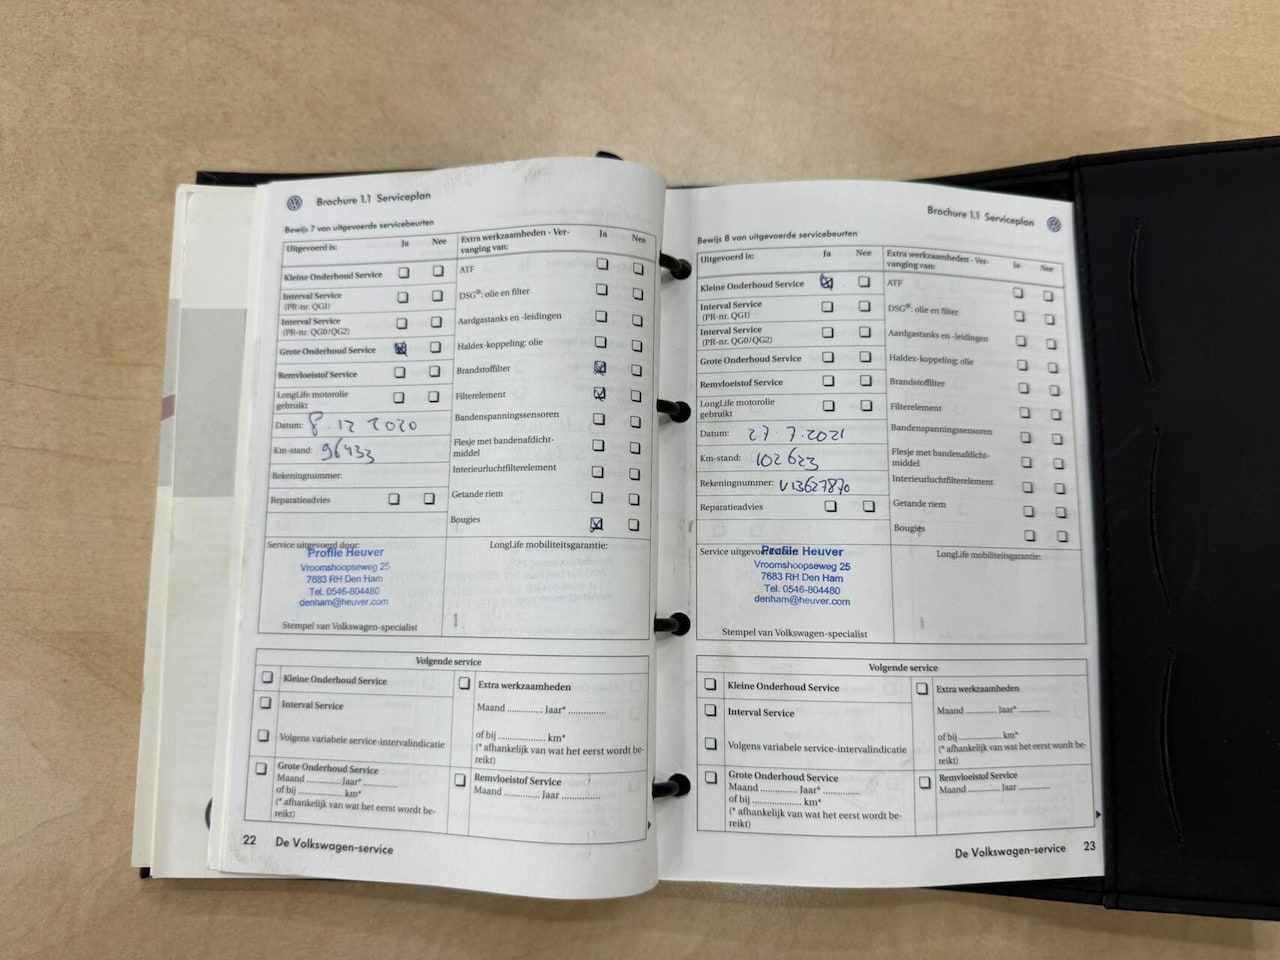 Brochure 1.1 Serviceplan
Bewijs 7 van uitgevoerde servicebeurten
Uitgevoerd is: Ja Nee
Extra werkzaamheden - Ver-
vanging van: Ja Nee
Kleine Onderhoud Service
Interval Service
(PR-nr. QG1)
Interval Service
(PR-nr. QG0/QG2)
Grote Onderhoud Service
Remvloeistof Service
LongLife motorolie
gebruikt
Datum: 8 12 2020
Km-stand: 96433
Rekeningnummer:
Reparatieadvies
ATF
DSG®: olie en filter
Aardgastanks en -leidingen
Haldex-koppeling: olie
Brandstoffilter
Filterelement
Bandenspanningssensoren
Flesje met bandenafdicht-
middel
Interieurluchtfilterelement
Getande riem
Bougies
Service uitgevoerd door:
Profile Heuver
Vroomshoopseweg 25
7683 RH Den Ham
Tel. 0546-804480
denham@heuver.com
Stempel van Volkswagen-specialist
LongLife mobiliteitsgarantie:
Volgende service
Kleine Onderhoud Service
Interval Service
Volgens variabele service-intervalindicatie
Grote Onderhoud Service
Maand ............ Jaar* ............
of bij ............ km*
(* afhankelijk van wat het eerst wordt be-
reikt)
Extra werkzaamheden
Maand ............ Jaar* ............
of bij ............ km*
(* afhankelijk van wat het eerst wordt be-
reikt)
Remvloeistof Service
Maand ............ Jaar ............
22 De Volkswagen-service
Brochure 1.1 Serviceplan
Bewijs 8 van uitgevoerde servicebeurten
Uitgevoerd is: Ja Nee
Extra werkzaamheden - Ver-
vanging van: Ja Nee
Kleine Onderhoud Service
Interval Service
(PR-nr. QG1)
Interval Service
(PR-nr. QG0/QG2)
Grote Onderhoud Service
Remvloeistof Service
LongLife motorolie
gebruikt
Datum: 27.7.2021
Km-stand: 102623
Rekeningnummer: V13627870
Reparatieadvies
ATF
DSG®: olie en filter
Aardgastanks en -leidingen
Haldex-koppeling: olie
Brandstoffilter
Filterelement
Bandenspanningssensoren
Flesje met bandenafdicht-
middel
Interieurluchtfilterelement
Getande riem
Bougies
Service
Profile Heuver
Vroomshoopseweg 25
7683 RH Den Ham
Tel. 0546-804480
denham@heuver.com
Stempel van Volkswagen-specialist
LongLife mobiliteitsgarantie:
Volgende service
Kleine Onderhoud Service
Interval Service
Volgens variabele service-intervalindicatie
Grote Onderhoud Service
Maand ............ Jaar* ............
of bij ............ km*
(* afhankelijk van wat het eerst wordt be-
reikt)
Extra werkzaamheden
Maand ............ Jaar* ............
of bij ............ km*
(* afhankelijk van wat het eerst wordt be-
reikt)
Remvloeistof Service
Maand ............ Jaar ............
De Volkswagen-service 23